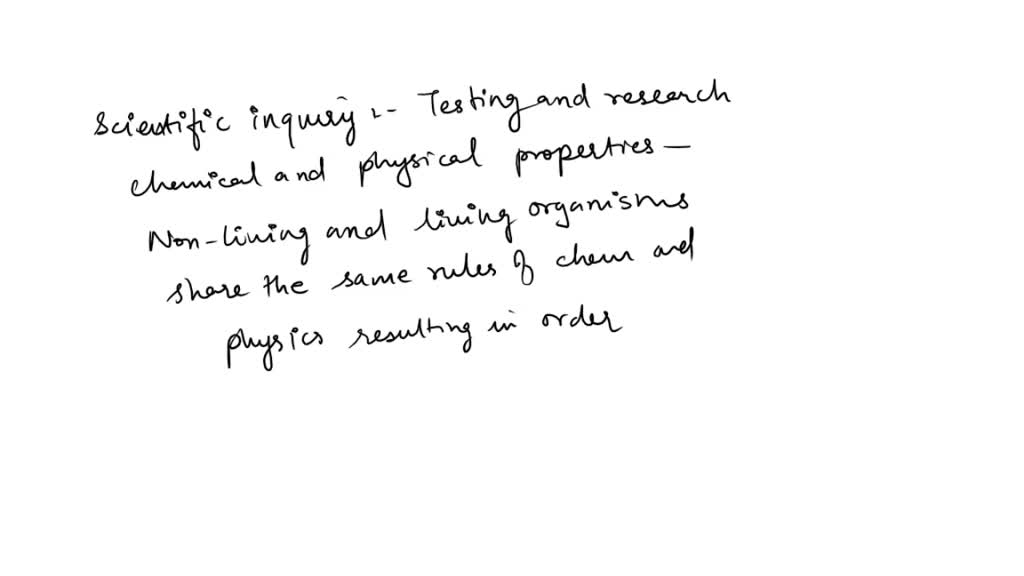 Scientific inquiry :- Testing and research
chemical and physical properties -
Non-living and living organisms
share the same rules of chem and
physics resulting in order